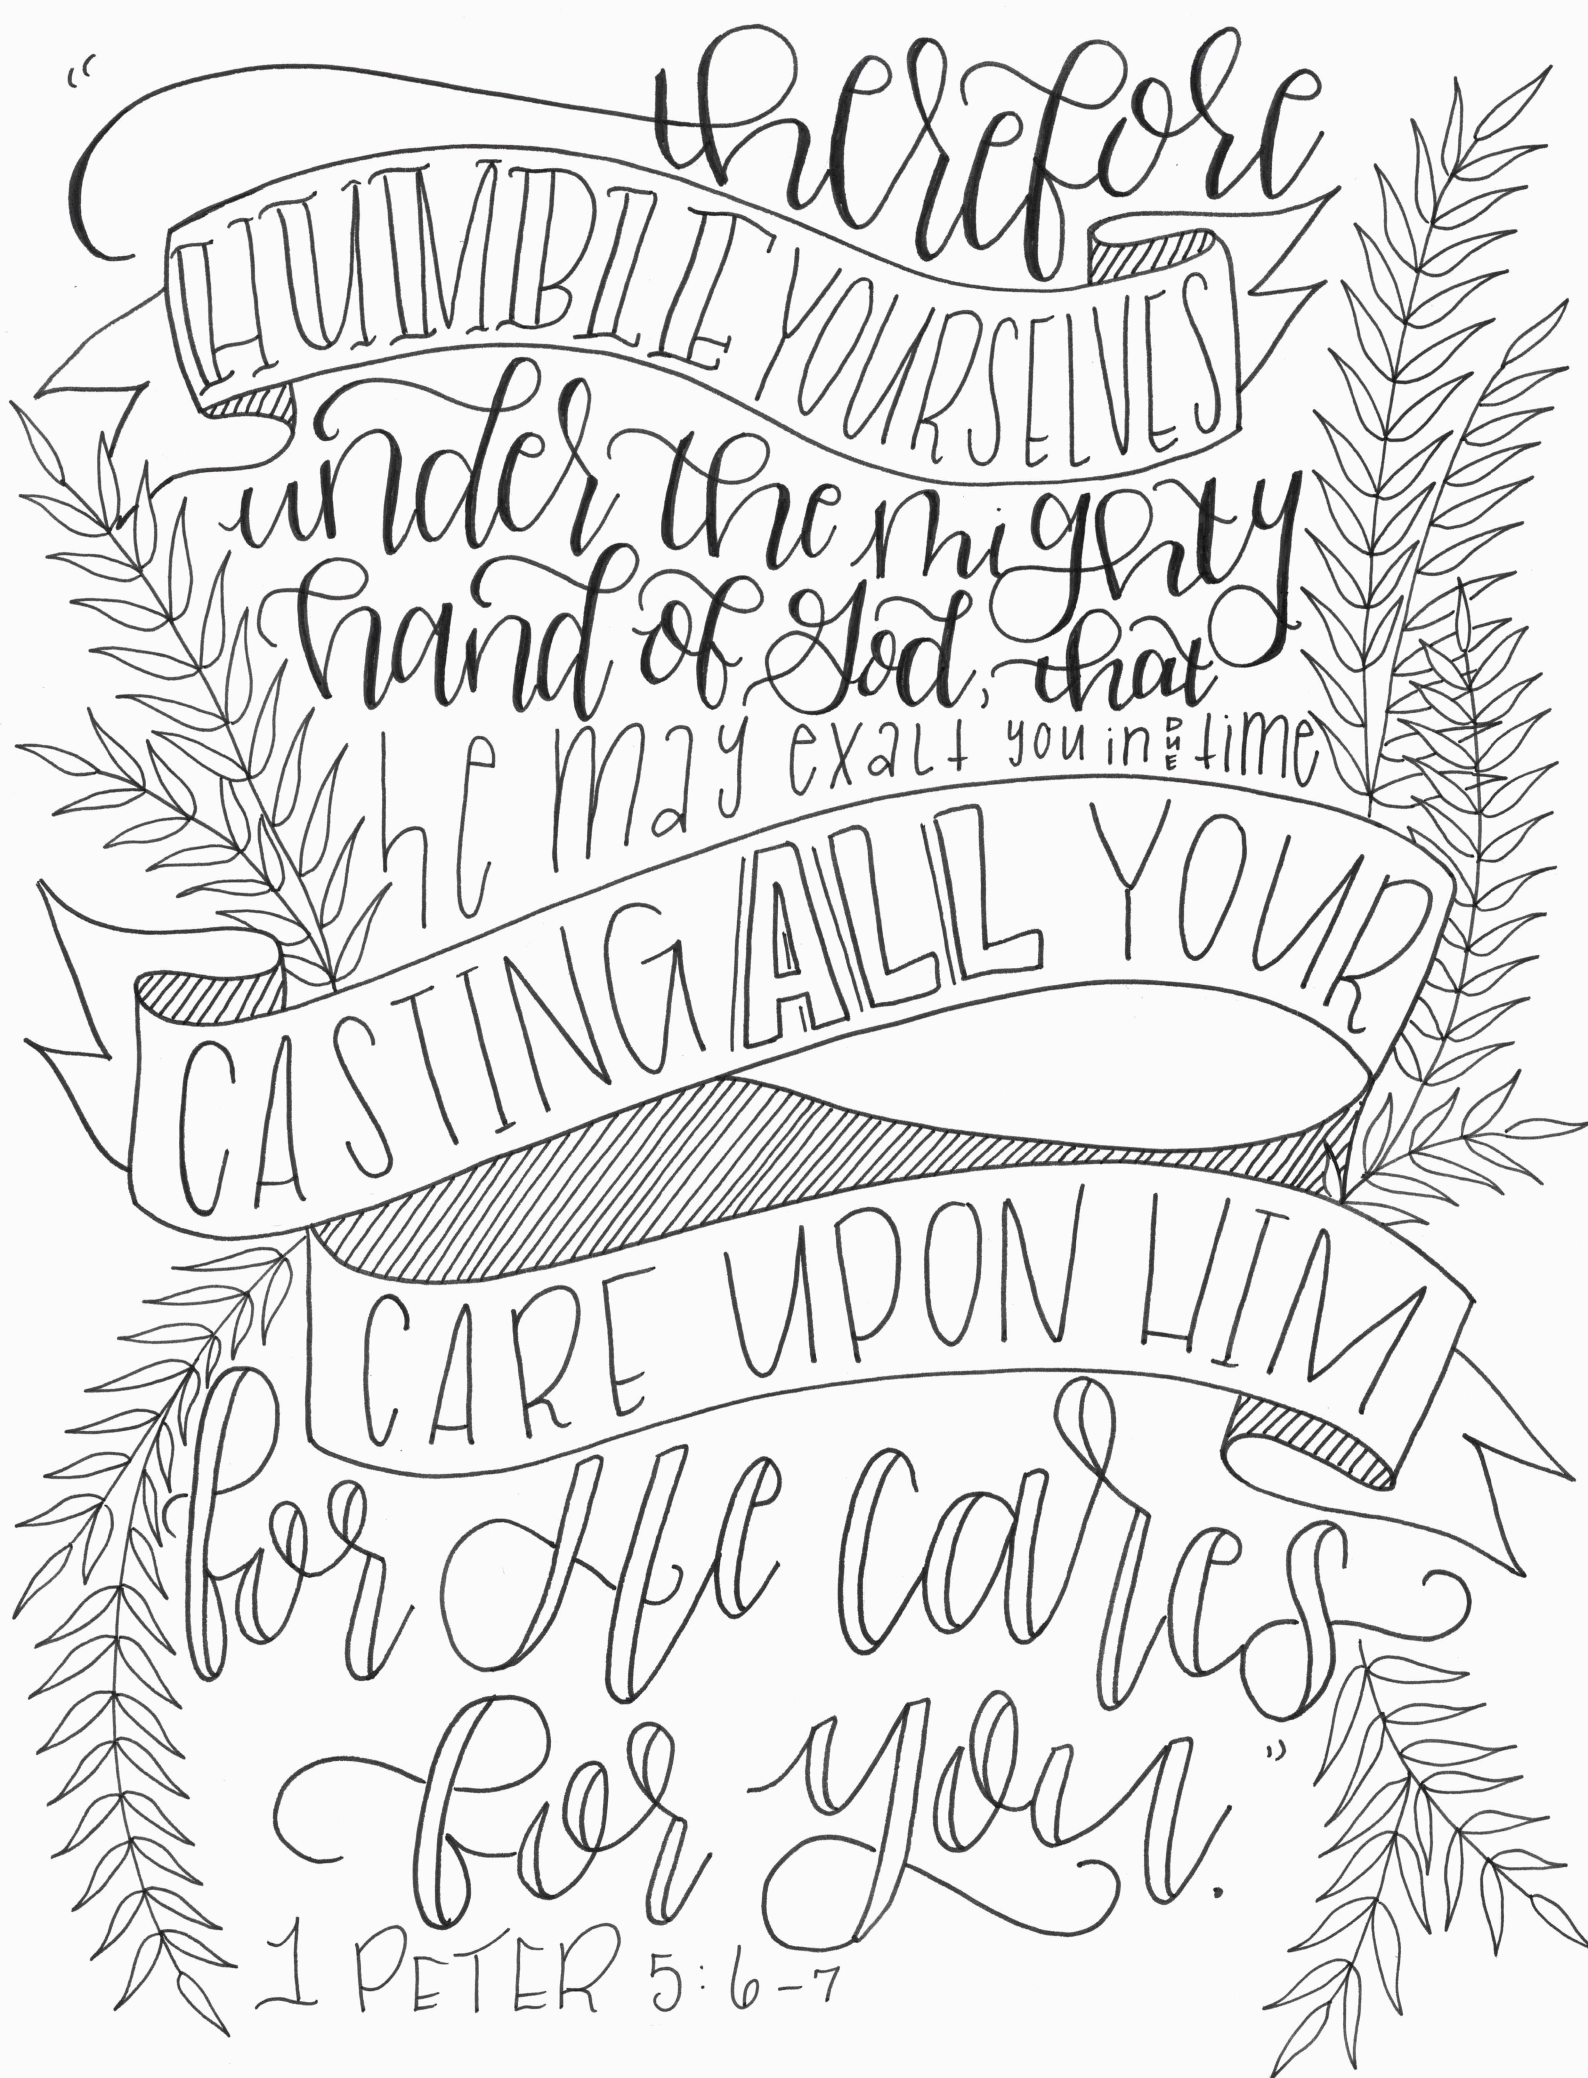 "therefore
HUMBLE YOURSELVES
under the mighty
hand of God, that
he may exalt you in DUE time
CASTING ALL YOUR
CARE UPON HIM
for He cares
for you."
1 PETER 5:6-7